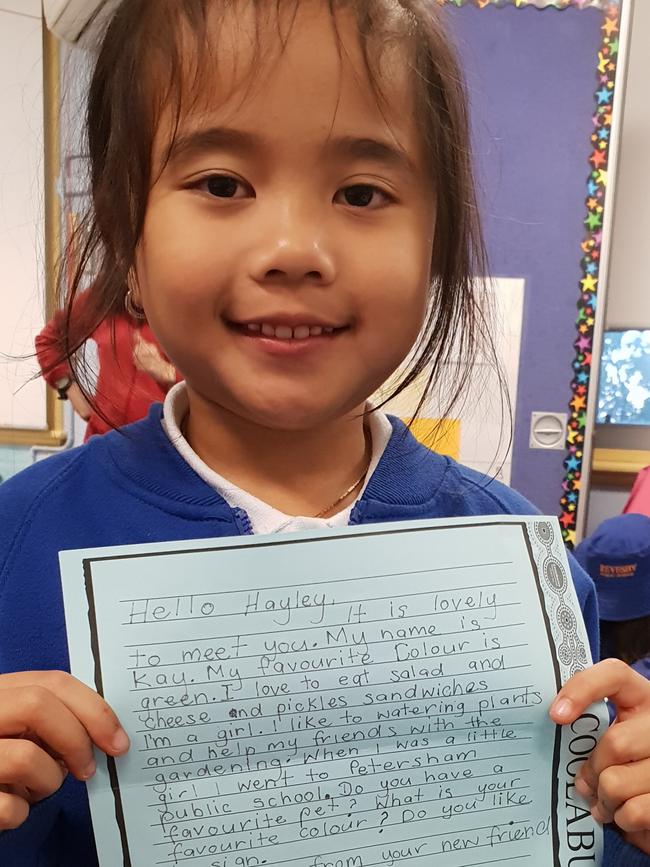 Hello Hayley, It is lovely
to meet you. My name is
Kay. My favourite Colour is
green. I love to eat salad and
cheese and pickles sandwiches
I'm a girl. I like to watering plants
and help my friends with the
gardening. When I was a little
girl I went to Petersham
public school. Do you have a
favourite pet? What is your
favourite colour? Do you like
sign. from your new friend
COOLAB
REVESBY